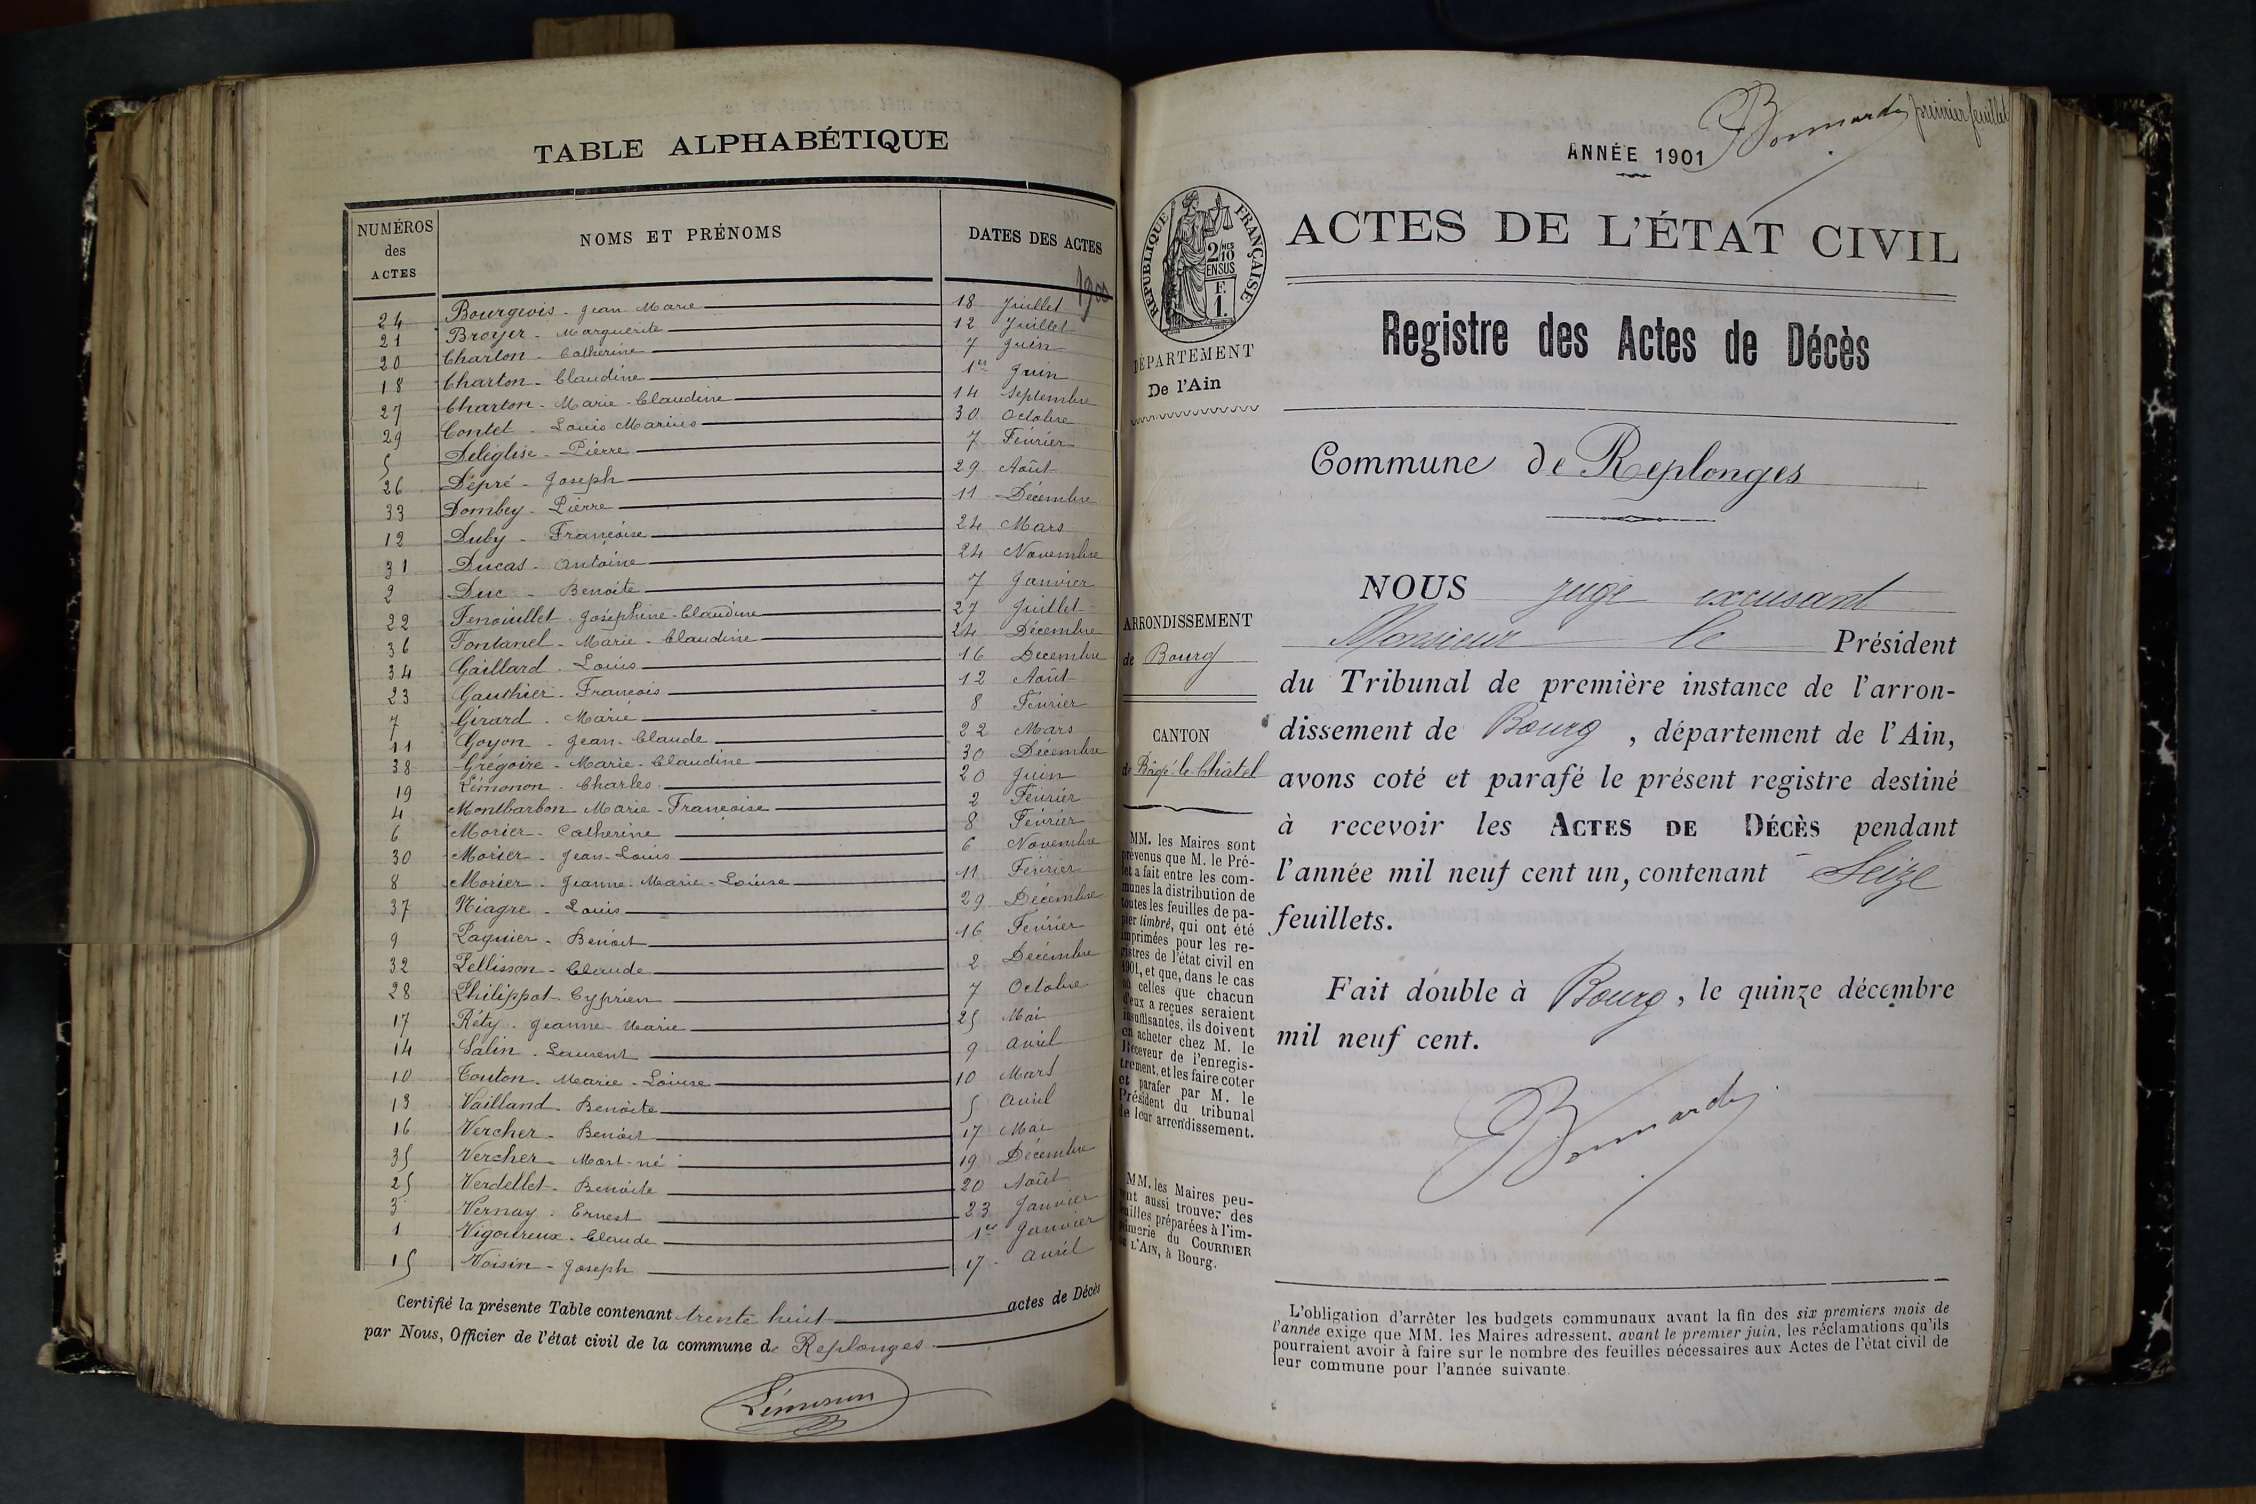 TABLE ALPHABÉTIQUE
NUMÉROS des ACTES
NOMS ET PRÉNOMS
DATES DES ACTES
1900
24 Bourgeois - Jean Marie 18 Juillet
21 Broyer - Marguerite 12 Juillet
20 Charton - Catherine 7 Juin
18 Charton - Claudine 1er Juin
27 Charton - Marie-Claudine 14 Septembre
29 Contet - Louis Marius 30 Octobre
5 Déléglise - Pierre 7 Février
26 Dépré - Joseph 29 Août
33 Dombey - Pierre 11 Décembre
12 Duby - Françoise 24 Mars
31 Ducas - Antoine 24 Novembre
2 Duc - Benoîte 7 Janvier
22 Fenouillet - Joséphine-Claudine 27 Juillet
36 Fontanel - Marie-Claudine 24 Décembre
34 Gaillard - Louis 16 Décembre
23 Gauthier - François 12 Août
7 Girard - Marie 8 Février
11 Goyon - Jean-Claude 22 Mars
38 Grégoire - Marie-Claudine 30 Décembre
19 Lémonon - Charles 20 Juin
4 Montbarbon - Marie-Françoise 2 Février
6 Morier - Catherine 8 Février
30 Morier - Jean-Louis 6 Novembre
8 Morier - Jeanne-Marie-Louise 11 Février
37 Niagre - Louis 29 Décembre
9 Paquier - Benoît 16 Février
32 Pellisson - Claude 2 Décembre
28 Philippat - Cyprien 7 Octobre
17 Réty - Jeanne-Marie 25 Mai
14 Salin - Laurent 9 Avril
10 Touton - Marie-Louise 10 Mars
13 Vailland - Benoîte 5 Avril
16 Vercher - Benoît 17 Mai
35 Vercher - Mort-né 19 Décembre
25 Verdellet - Benoîte 20 Août
3 Vernay - Ernest 23 Janvier
1 Vigoureux - Claude 1er Janvier
15 Voisin - Joseph 17 Avril
Certifié la présente Table contenant trente huit actes de Décès
par Nous, Officier de l'état civil de la commune de Replonges
Lémonon
Bonnardy premier feuillet
ANNÉE 1901
RÉPUBLIQUE FRANÇAISE
2/10 MES
EN SUS
F.
1.
DÉPARTEMENT
De l'Ain
ACTES DE L'ÉTAT CIVIL
Registre des Actes de Décès
Commune de Replonges
ARRONDISSEMENT
de Bourg
CANTON
de Bâgé-le-Châtel
NOUS juge excusant
Monsieur le Président
du Tribunal de première instance de l'arron-
dissement de Bourg, département de l'Ain,
avons coté et parafé le présent registre destiné
à recevoir les ACTES DE DÉCÈS pendant
l'année mil neuf cent un, contenant Seize
feuillets.
Fait double à Bourg, le quinze décembre
mil neuf cent.
Bonnardy
MM. les Maires sont
prévenus que M. le Pré-
fet a fait entre les com-
munes la distribution de
toutes les feuilles de pa-
pier timbré, qui ont été
imprimées pour les re-
gistres de l'état civil en
1901, et que, dans le cas
où celles que chacun
d'eux a reçues seraient
insuffisantes, ils doivent
en acheter chez M. le
Receveur de l'enregis-
trement, et les faire coter
et parafer par M. le
Président du tribunal
de leur arrondissement.
MM. les Maires peu-
vent aussi trouver des
feuilles préparées à l'im-
primerie du COURRIER
DE L'AIN, à Bourg.
L'obligation d'arrêter les budgets communaux avant la fin des six premiers mois de
l'année exige que MM. les Maires adressent, avant le premier juin, les réclamations qu'ils
pourraient avoir à faire sur le nombre des feuilles nécessaires aux Actes de l'état civil de
leur commune pour l'année suivante.